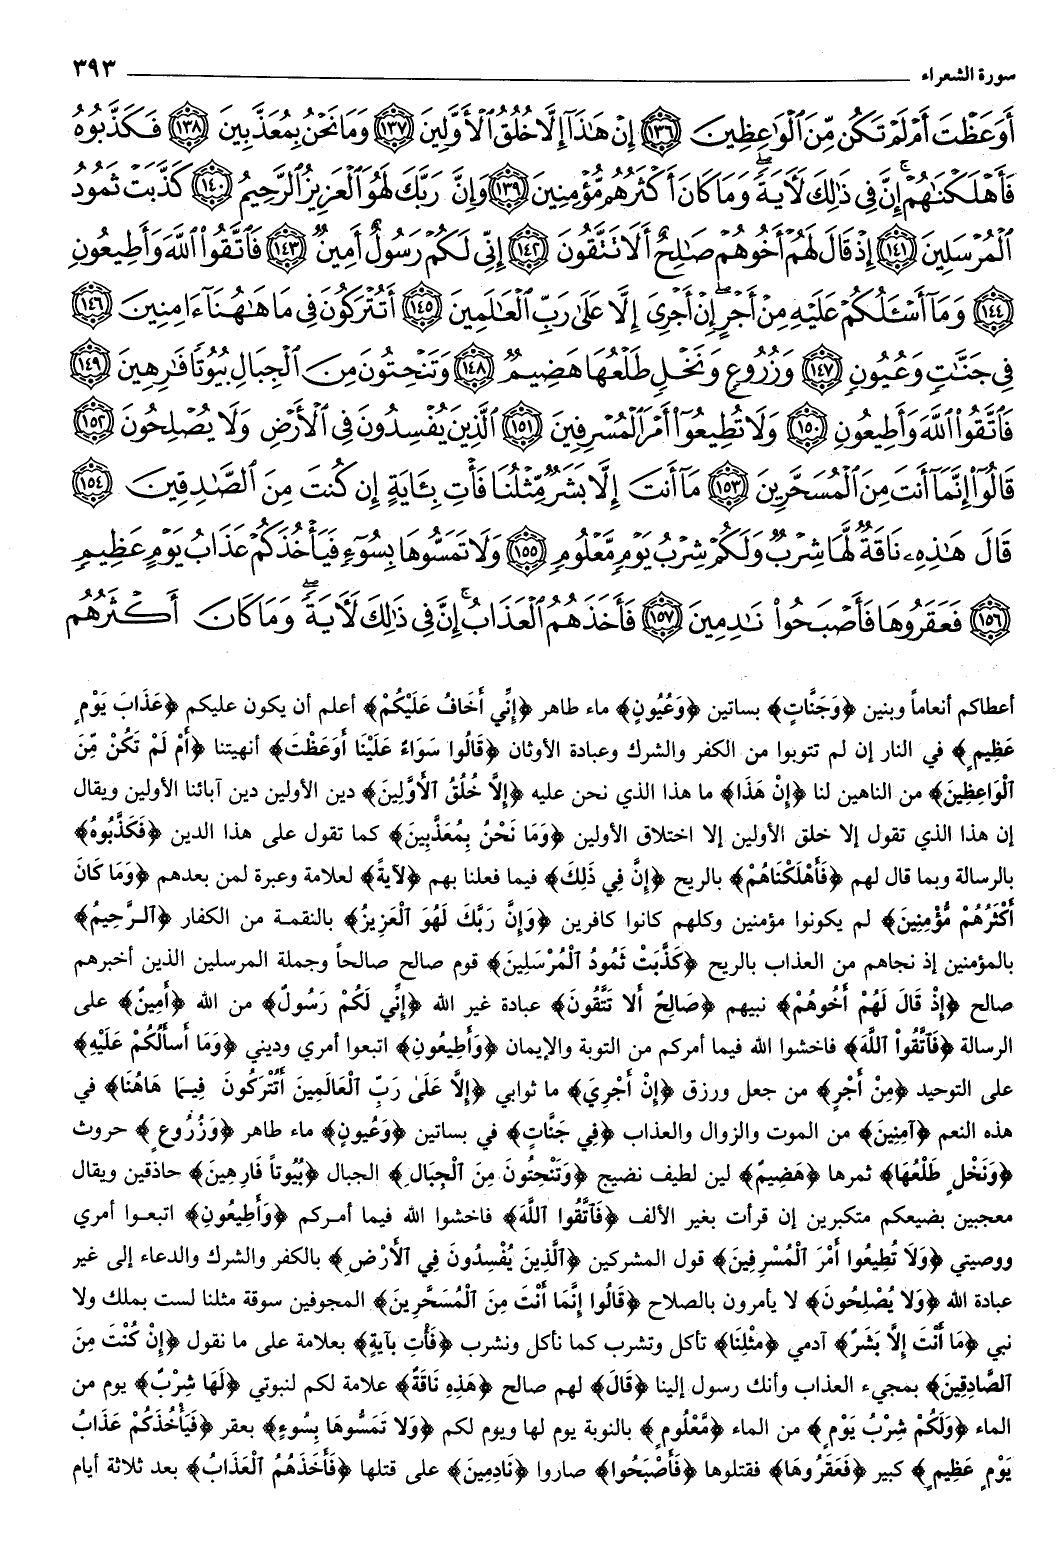 سورة الشعراء ٣٩٣
أَوَعَظْتَ أَمْ لَمْ تَكُن مِّنَ ٱلْوَٰعِظِينَ ١٣٦ إِنْ هَٰذَآ إِلَّا خُلُقُ ٱلْأَوَّلِينَ ١٣٧ وَمَا نَحْنُ بِمُعَذَّبِينَ ١٣٨ فَكَذَّبُوهُ
فَأَهْلَكْنَٰهُمْ ۚ إِنَّ فِى ذَٰلِكَ لَأٓيَةً ۖ وَمَا كَانَ أَكْثَرُهُم مُّؤْمِنِينَ ١٣٩ وَإِنَّ رَبَّكَ لَهُوَ ٱلْعَزِيزُ ٱلرَّحِيمُ ١٤٠ كَذَّبَتْ ثَمُودُ
ٱلْمُرْسَلِينَ ١٤١ إِذْ قَالَ لَهُمْ أَخُوهُمْ صَٰلِحٌ أَلَا تَتَّقُونَ ١٤٢ إِنِّى لَكُمْ رَسُولٌ أَمِينٌ ١٤٣ فَٱتَّقُوا۟ ٱللَّهَ وَأَطِيعُونِ
١٤٤ وَمَآ أَسْـَٔلُكُمْ عَلَيْهِ مِنْ أَجْرٍ ۖ إِنْ أَجْرِىَ إِلَّا عَلَىٰ رَبِّ ٱلْعَٰلَمِينَ ١٤٥ أَتُتْرَكُونَ فِى مَا هَٰهُنَآ ءَامِنِينَ ١٤٦
فِى جَنَّٰتٍ وَعُيُونٍ ١٤٧ وَزُرُوعٍ وَنَخْلٍ طَلْعُهَا هَضِيمٌ ١٤٨ وَتَنْحِتُونَ مِنَ ٱلْجِبَالِ بُيُوتًا فَٰرِهِينَ ١٤٩
فَٱتَّقُوا۟ ٱللَّهَ وَأَطِيعُونِ ١٥٠ وَلَا تُطِيعُوٓا۟ أَمْرَ ٱلْمُسْرِفِينَ ١٥١ ٱلَّذِينَ يُفْسِدُونَ فِى ٱلْأَرْضِ وَلَا يُصْلِحُونَ ١٥٢
قَالُوٓا۟ إِنَّمَآ أَنتَ مِنَ ٱلْمُسَحَّرِينَ ١٥٣ مَآ أَنتَ إِلَّا بَشَرٌ مِّثْلُنَا فَأْتِ بِـَٔايَةٍ إِن كُنتَ مِنَ ٱلصَّٰدِقِينَ ١٥٤
قَالَ هَٰذِهِۦ نَاقَةٌ لَّهَا شِرْبٌ وَلَكُمْ شِرْبُ يَوْمٍ مَّعْلُومٍ ١٥٥ وَلَا تَمَسُّوهَا بِسُوٓءٍ فَيَأْخُذَكُمْ عَذَابُ يَوْمٍ عَظِيمٍ
١٥٦ فَعَقَرُوهَا فَأَصْبَحُوا۟ نَٰدِمِينَ ١٥٧ فَأَخَذَهُمُ ٱلْعَذَابُ ۗ إِنَّ فِى ذَٰلِكَ لَأٓيَةً ۖ وَمَا كَانَ أَكْثَرُهُم
أعطاكم أنعاماً وبنين ﴿وَجَنَّاتٍ﴾ بساتين ﴿وَعُيُونٍ﴾ ماء طاهر ﴿إِنِّي أَخَافُ عَلَيْكُمْ﴾ أعلم أن يكون عليكم ﴿عَذَابَ يَوْمٍ
عَظِيمٍ﴾ في النار إن لم تتوبوا من الكفر والشرك وعبادة الأوثان ﴿قَالُوا سَوَاءٌ عَلَيْنَا أَوَعَظْتَ﴾ أنهيتنا ﴿أَمْ لَمْ تَكُنْ مِّنَ
ٱلْوَاعِظِينَ﴾ من الناهين لنا ﴿إِنْ هَذَا﴾ ما هذا الذي نحن عليه ﴿إِلَّا خُلُقُ ٱلأَوَّلِينَ﴾ دين الأولين دين آبائنا الأولين ويقال
إن هذا الذي تقول إلا خلق الأولين إلا اختلاق الأولين ﴿وَمَا نَحْنُ بِمُعَذَّبِينَ﴾ كما تقول على هذا الدين ﴿فَكَذَّبُوهُ﴾
بالرسالة وبما قال لهم ﴿فَأَهْلَكْنَاهُمْ﴾ بالريح ﴿إِنَّ فِي ذَلِكَ﴾ فيما فعلنا بهم ﴿لآيَةً﴾ لعلامة وعبرة لمن بعدهم ﴿وَمَا كَانَ
أَكْثَرُهُمْ مُّؤْمِنِينَ﴾ لم يكونوا مؤمنين وكلهم كانوا كافرين ﴿وَإِنَّ رَبَّكَ لَهُوَ ٱلْعَزِيزُ﴾ بالنقمة من الكفار ﴿ٱلرَّحِيمُ﴾
بالمؤمنين إذ نجاهم من العذاب بالريح ﴿كَذَّبَتْ ثَمُودُ ٱلْمُرْسَلِينَ﴾ قوم صالح صالحاً وجملة المرسلين الذين أخبرهم
صالح ﴿إِذْ قَالَ لَهُمْ أَخُوهُمْ﴾ نبيهم ﴿صَالِحٌ أَلا تَتَّقُونَ﴾ عبادة غير الله ﴿إِنِّي لَكُمْ رَسُولٌ﴾ من الله ﴿أَمِينٌ﴾ على
الرسالة ﴿فَٱتَّقُواْ ٱللَّهَ﴾ فاخشوا الله فيما أمركم من التوبة والإيمان ﴿وَأَطِيعُونِ﴾ اتبعوا أمري وديني ﴿وَمَا أَسأَلُكُمْ عَلَيْهِ﴾
على التوحيد ﴿مِنْ أَجْرٍ﴾ من جعل ورزق ﴿إِنْ أَجْرِيَ﴾ ما ثوابي ﴿إِلَّا عَلَىٰ رَبِّ ٱلْعَالَمِينَ أَتُتْرَكُونَ فِيمَا هَاهُنَا﴾ في
هذه النعم ﴿آمِنِينَ﴾ من الموت والزوال والعذاب ﴿فِي جَنَّاتٍ﴾ في بساتين ﴿وَعُيونٍ﴾ ماء طاهر ﴿وَزُرُوعٍ﴾ حروث
﴿وَنَخْلٍ طَلْعُهَا﴾ ثمرها ﴿هَضِيمٌ﴾ لين لطيف نضيج ﴿وَتَنْحِتُونَ مِنَ ٱلْجِبَالِ﴾ الجبال ﴿بُيُوتاً فَارِهِينَ﴾ حاذقين ويقال
معجبين بضيعكم متكبرين إن قرأت بغير الألف ﴿فَاتَّقُوا ٱللَّهَ﴾ فاخشوا الله فيما أمركم ﴿وَأَطِيعُونِ﴾ اتبعوا أمري
ووصيتي ﴿وَلَا تُطِيعُوا أَمْرَ ٱلْمُسْرِفِينَ﴾ قول المشركين ﴿ٱلَّذِينَ يُفْسِدُونَ فِي ٱلأَرْضِ﴾ بالكفر والشرك والدعاء إلى غير
عبادة الله ﴿وَلَا يُصْلِحُونَ﴾ لا يأمرون بالصلاح ﴿قَالُوا إِنَّمَا أَنْتَ مِنَ ٱلْمُسَحَّرِينَ﴾ المجوفين سوقة مثلنا لست بملك ولا
نبي ﴿مَا أَنْتَ إِلَّا بَشَرٌ﴾ آدمي ﴿مثْلِنَا﴾ تأكل وتشرب كما نأكل ونشرب ﴿فَأْتِ بآيَةٍ﴾ بعلامة على ما نقول ﴿إِنْ كُنْتَ مِنَ
ٱلصَّادِقِينَ﴾ بمجيء العذاب وأنك رسول إلينا ﴿قَالَ﴾ لهم صالح ﴿هَذِهِ نَاقَةٌ﴾ علامة لكم لنبوتي ﴿لَهَا شِرْبٌ﴾ يوم من
الماء ﴿وَلَكُمْ شِرْبُ يَوْمٍ﴾ من الماء ﴿مَّعْلُومٍ﴾ بالنوبة يوم لها ويوم لكم ﴿وَلَا تَمَسُّوهَا بِسُوءٍ﴾ بعقر ﴿فَيَأْخُذَكُمْ عَذَابُ
يَوْمٍ عَظِيمٍ﴾ كبير ﴿فَعَقَرُوهَا﴾ فقتلوها ﴿فَأَصْبَحُوا﴾ صاروا ﴿نَادِمِينَ﴾ على قتلها ﴿فَأَخَذَهُمُ ٱلْعَذَابُ﴾ بعد ثلاثة أيام